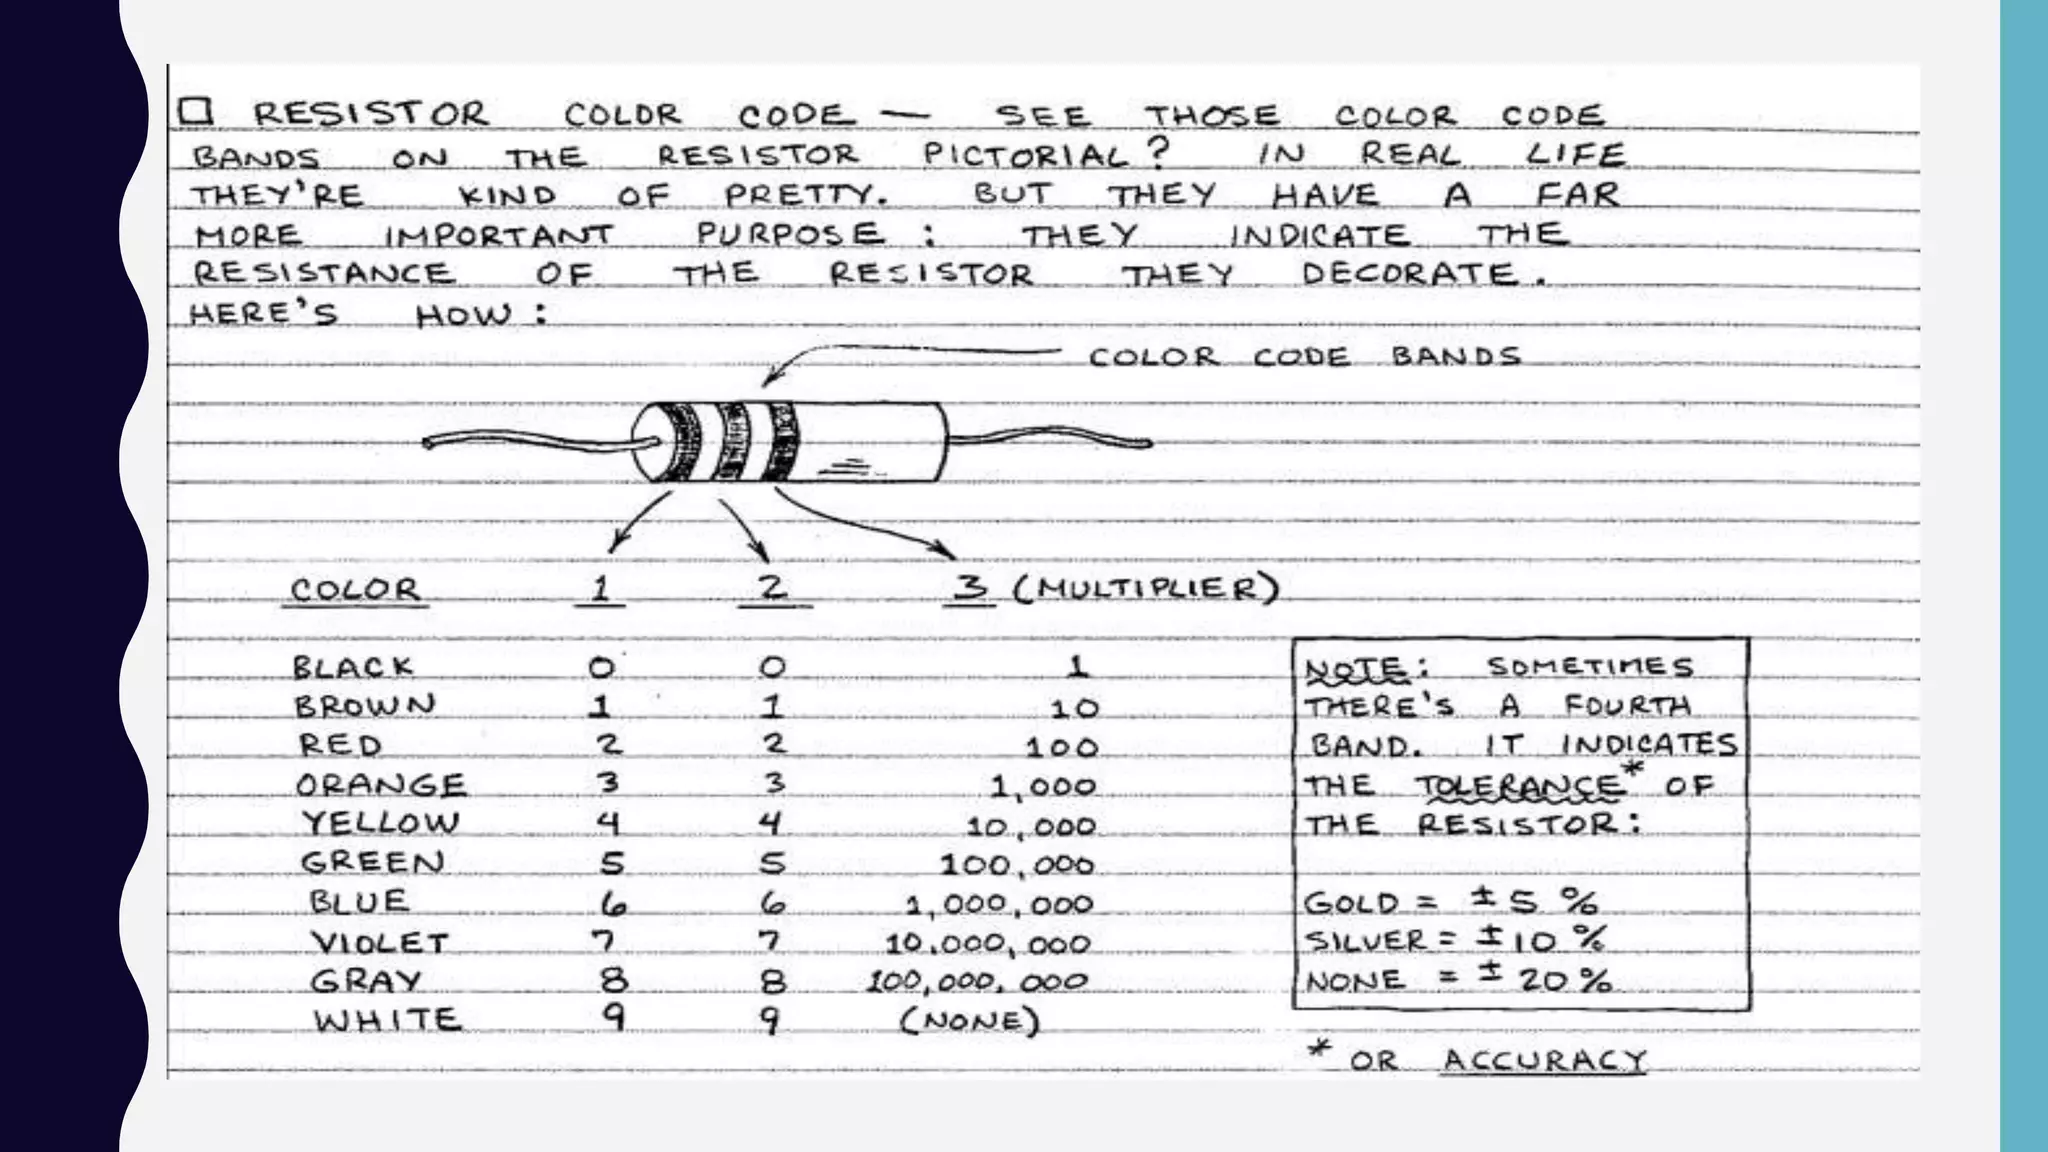 □ RESISTOR COLOR CODE — SEE THOSE COLOR CODE
BANDS ON THE RESISTOR PICTORIAL? IN REAL LIFE
THEY'RE KIND OF PRETTY. BUT THEY HAVE A FAR
MORE IMPORTANT PURPOSE: THEY INDICATE THE
RESISTANCE OF THE RESISTOR THEY DECORATE.
HERE'S HOW:
COLOR CODE BANDS
COLOR 1 2 3 (MULTIPLIER)
BLACK 0 0 1
BROWN 1 1 10
RED 2 2 100
ORANGE 3 3 1,000
YELLOW 4 4 10,000
GREEN 5 5 100,000
BLUE 6 6 1,000,000
VIOLET 7 7 10,000,000
GRAY 8 8 100,000,000
WHITE 9 9 (NONE)
NOTE: SOMETIMES
THERE'S A FOURTH
BAND. IT INDICATES
THE TOLERANCE* OF
THE RESISTOR:
GOLD = ±5 %
SILVER = ±10 %
NONE = ± 20 %
* OR ACCURACY